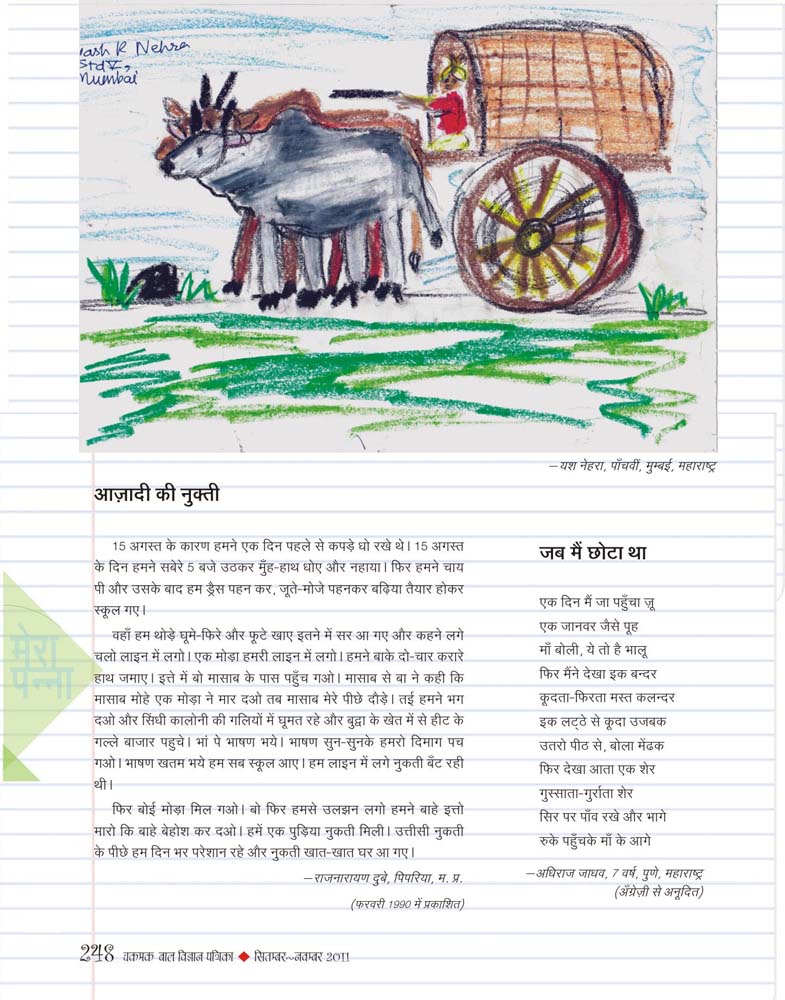 yash R Nehra
Std V,
Mumbai
—यश नेहरा, पाँचवीं, मुम्बई, महाराष्ट्र
आज़ादी की नुक्ती
15 अगस्त के कारण हमने एक दिन पहले से कपड़े धो रखे थे। 15 अगस्त
के दिन हमने सबेरे 5 बजे उठकर मुँह-हाथ धोए और नहाया। फिर हमने चाय
पी और उसके बाद हम ड्रैस पहन कर, जूते-मोजे पहनकर बढ़िया तैयार होकर
स्कूल गए।
वहाँ हम थोड़े घूमे-फिरे और फूटे खाए इतने में सर आ गए और कहने लगे
चलो लाइन में लगो। एक मोड़ा हमरी लाइन में लगो। हमने बाके दो-चार करारे
हाथ जमाए। इत्ते में बो मासाब के पास पहुँच गओ। मासाब से बा ने कही कि
मासाब मोहे एक मोड़ा ने मार दओ तब मासाब मेरे पीछे दौड़े। तई हमने भग
दओ और सिंधी कालोनी की गलियों में घूमत रहे और बुद्दा के खेत में से हीट के
गल्ले बाजार पहुचे। भां पे भाषण भये। भाषण सुन-सुनके हमरो दिमाग पच
गओ। भाषण खतम भये हम सब स्कूल आए। हम लाइन में लगे नुकती बँट रही
थी।
फिर बोई मोड़ा मिल गओ। बो फिर हमसे उलझन लगो हमने बाहे इत्तो
मारो कि बाहे बेहोश कर दओ। हमें एक पुड़िया नुकती मिली। उत्तीसी नुकती
के पीछे हम दिन भर परेशान रहे और नुकती खात-खात घर आ गए।
—राजनारायण दुबे, पिपरिया, म. प्र.
(फरवरी 1990 में प्रकाशित)
जब मैं छोटा था
एक दिन मैं जा पहुँचा ज़ू
एक जानवर जैसे पूह
माँ बोली, ये तो है भालू
फिर मैंने देखा इक बन्दर
कूदता-फिरता मस्त कलन्दर
इक लट्ठे से कूदा उजबक
उतरो पीठ से, बोला मेंढक
फिर देखा आता एक शेर
गुस्साता-गुर्राता शेर
सिर पर पाँव रखे और भागे
रुके पहुँचके माँ के आगे
—अधिराज जाधव, 7 वर्ष, पुणे, महाराष्ट्र
(अँग्रेज़ी से अनूदित)
मेरा
पन्ना
248 चकमक बाल विज्ञान पत्रिका ◆ सितम्बर~नवम्बर 2011